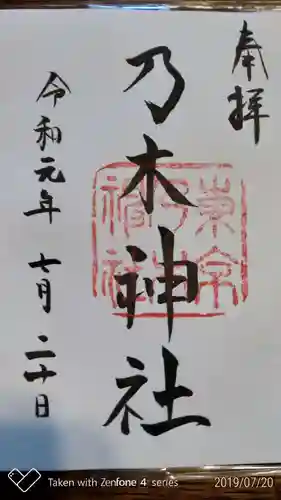 奉拝
乃木神社
令和元年七月二十日
東京
乃木
神社
Taken with Zenfone 4 series
2019/07/20